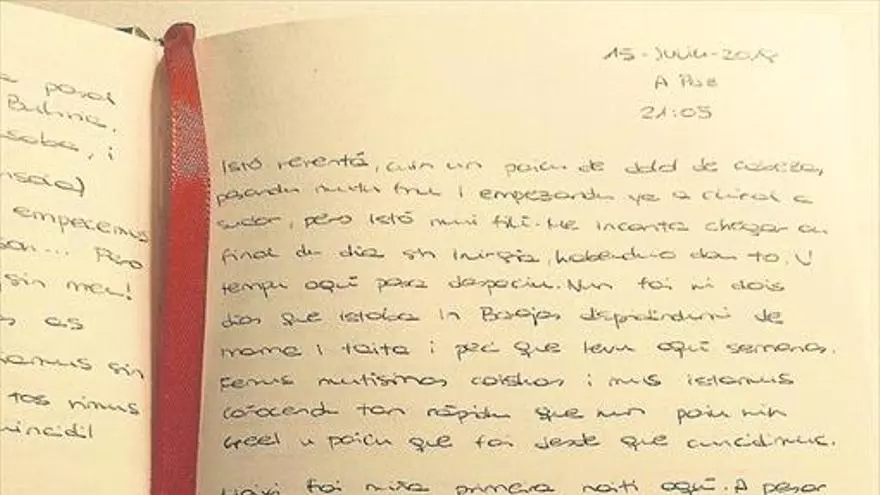 a posal
Bulma.
saba, i
nsial
empecemus
son... Pero
¡sin meu!
s as
samus sin
tos rimus
uincidil
15-Juliu-2018
A Paz
21:05
Istó rerentá, cuin un poicu de dolol de cabeza,
pasandu mutu friu i empezandu ya a
sudar, pero istó mui fili. Me incanta chegar au
final du dia sin inirgia, habendulo dau to. U
tempu aquí pasa despaciu. Nun fai ni dois
dias que istaba in Barajas dispidindumi de
mama i taita i peci que levu aquí semanas.
Femus mutísimas coishas i mus istamus
coñocendu tan rápidu que nun poiu nin
creel u poicu que fai desde que cuincidimus.
Hoixi fai miña primera noiti aquí. A pesar